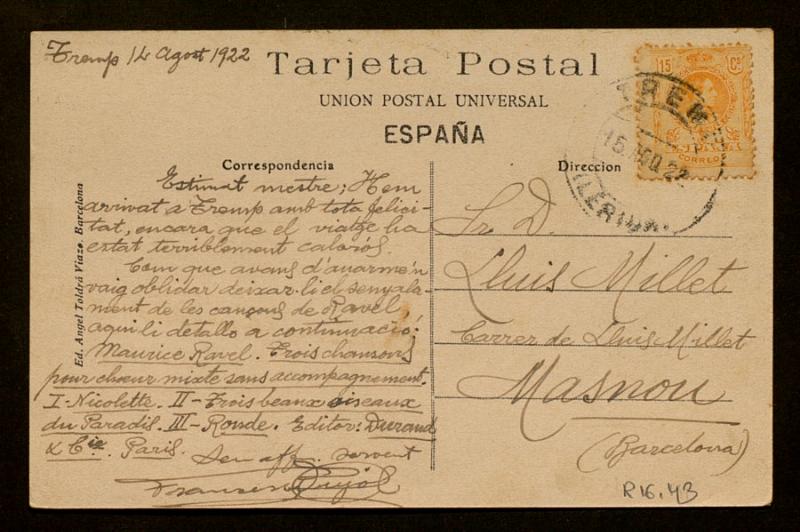 Tremp 14 Agost 1922
Tarjeta Postal
UNION POSTAL UNIVERSAL
ESPAÑA
Correspondencia
Estimat mestre: Hem
arrivat a Tremp amb tota felici-
tat, encara que el viatge ha
estat terriblement calorós.
Com que avans d'anarme'n
vaig oblidar deixar-li el senyala-
ment de les cançons de Ravel,
aqui li detallo a continuació:
Maurice Ravel. Trois chansons
pour chœur mixte sans accompagnement.
I-Nicolette. II-Trois beaux oiseaux
du Paradis. III-Ronde. Editor: Durand
& Cie. Paris.
Seu aff. servent
Francesc Pujol
Ed. Angel Toldrá Viazo. Barcelona
Direccion
Sr. D.
Lluis Millet
Carrer de Lluis Millet
Masnou
(Barcelona)
15 Cs
ESPAÑA
CORREOS
TREMP
15 AGO 22
(LERIDA)
R16.43